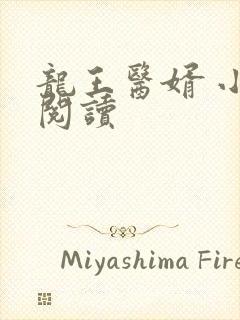 龍王醫婿 小
閱讀
Miyashima Fire